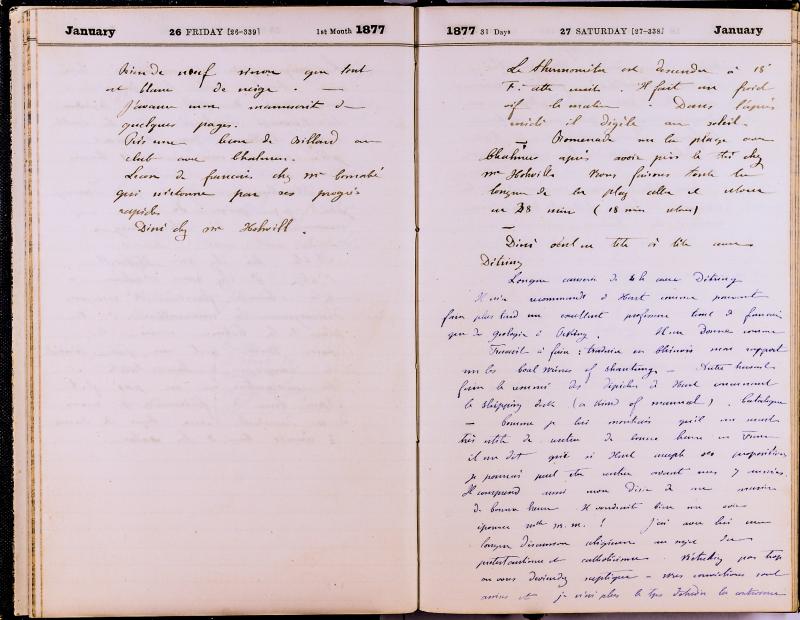 January 26 FRIDAY [26-339] 1st Month 1877
Rien de neuf sinon que tout
est blanc de neige. —
J'avance mon manuscrit de
quelques pages.
Pris une leçon de Billard au
club avec Chalmers.
Leçon de français chez Mr
qui m'étonne par ses progrès
rapides
Diné chez Mr
1877 31 Days 27 SATURDAY [27-338] January
Le thermomètre est descendu à 18°
F. cette nuit. Il fait un froid
vif le matin. Dans l'après
midi il dégèle au soleil.
— Promenade sur la plage avec
Chalmers après avoir pris le thé chez
Mr Nous faisons toute la
longueur de la plage aller et retour
en 38 min (18 min retour)
—
Diné seul en tête à tête avec
Détring
Longue causerie de 4 h avec Détring
Il m'a recommandé à Hart comme pouvant
faire plus tard un excellent professeur tant de français
que de géologie à Peking. Il me donne comme
Travail à faire : traduire en Chinois mon rapport
sur les coal mines of shantung. — Autre travail
faire le résumé des dépêches de Hart concernant
le shipping (a kind of manual). Catalogue
— Comme je lui montrais qu'il me serait
très utile de rentrer de bonne heure en France
il me dit que si Hart accepte ses propositions
je pourrais peut être rentrer avant mes 7 années.
Il comprend aussi mon désir de me marier
de bonne heure Il voudrait bien me voir
épouser Mlle M. M. ! J'ai avec lui une
longue discussion religieuse au sujet du
protestantisme et catholicisme. N'étudiez pas trop
ou vous deviendrez sceptique — mes convictions sont
et je n'ai plus le temps d'étudier la controverse